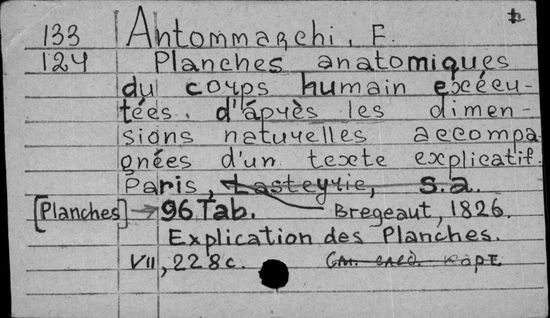 133 Antommarchi, F.
124 Planches anatomiques
du corps humain exéeu-
tées. d'áprès les dimen-
sions naturelles accompa
gnées d'un texte explicatif.
Paris, Lasteyrie, s.a.
[Planches] → 96 Tab. Bregeaut, 1826.
Explication des Planches.
VII, 228c. См. след. карт